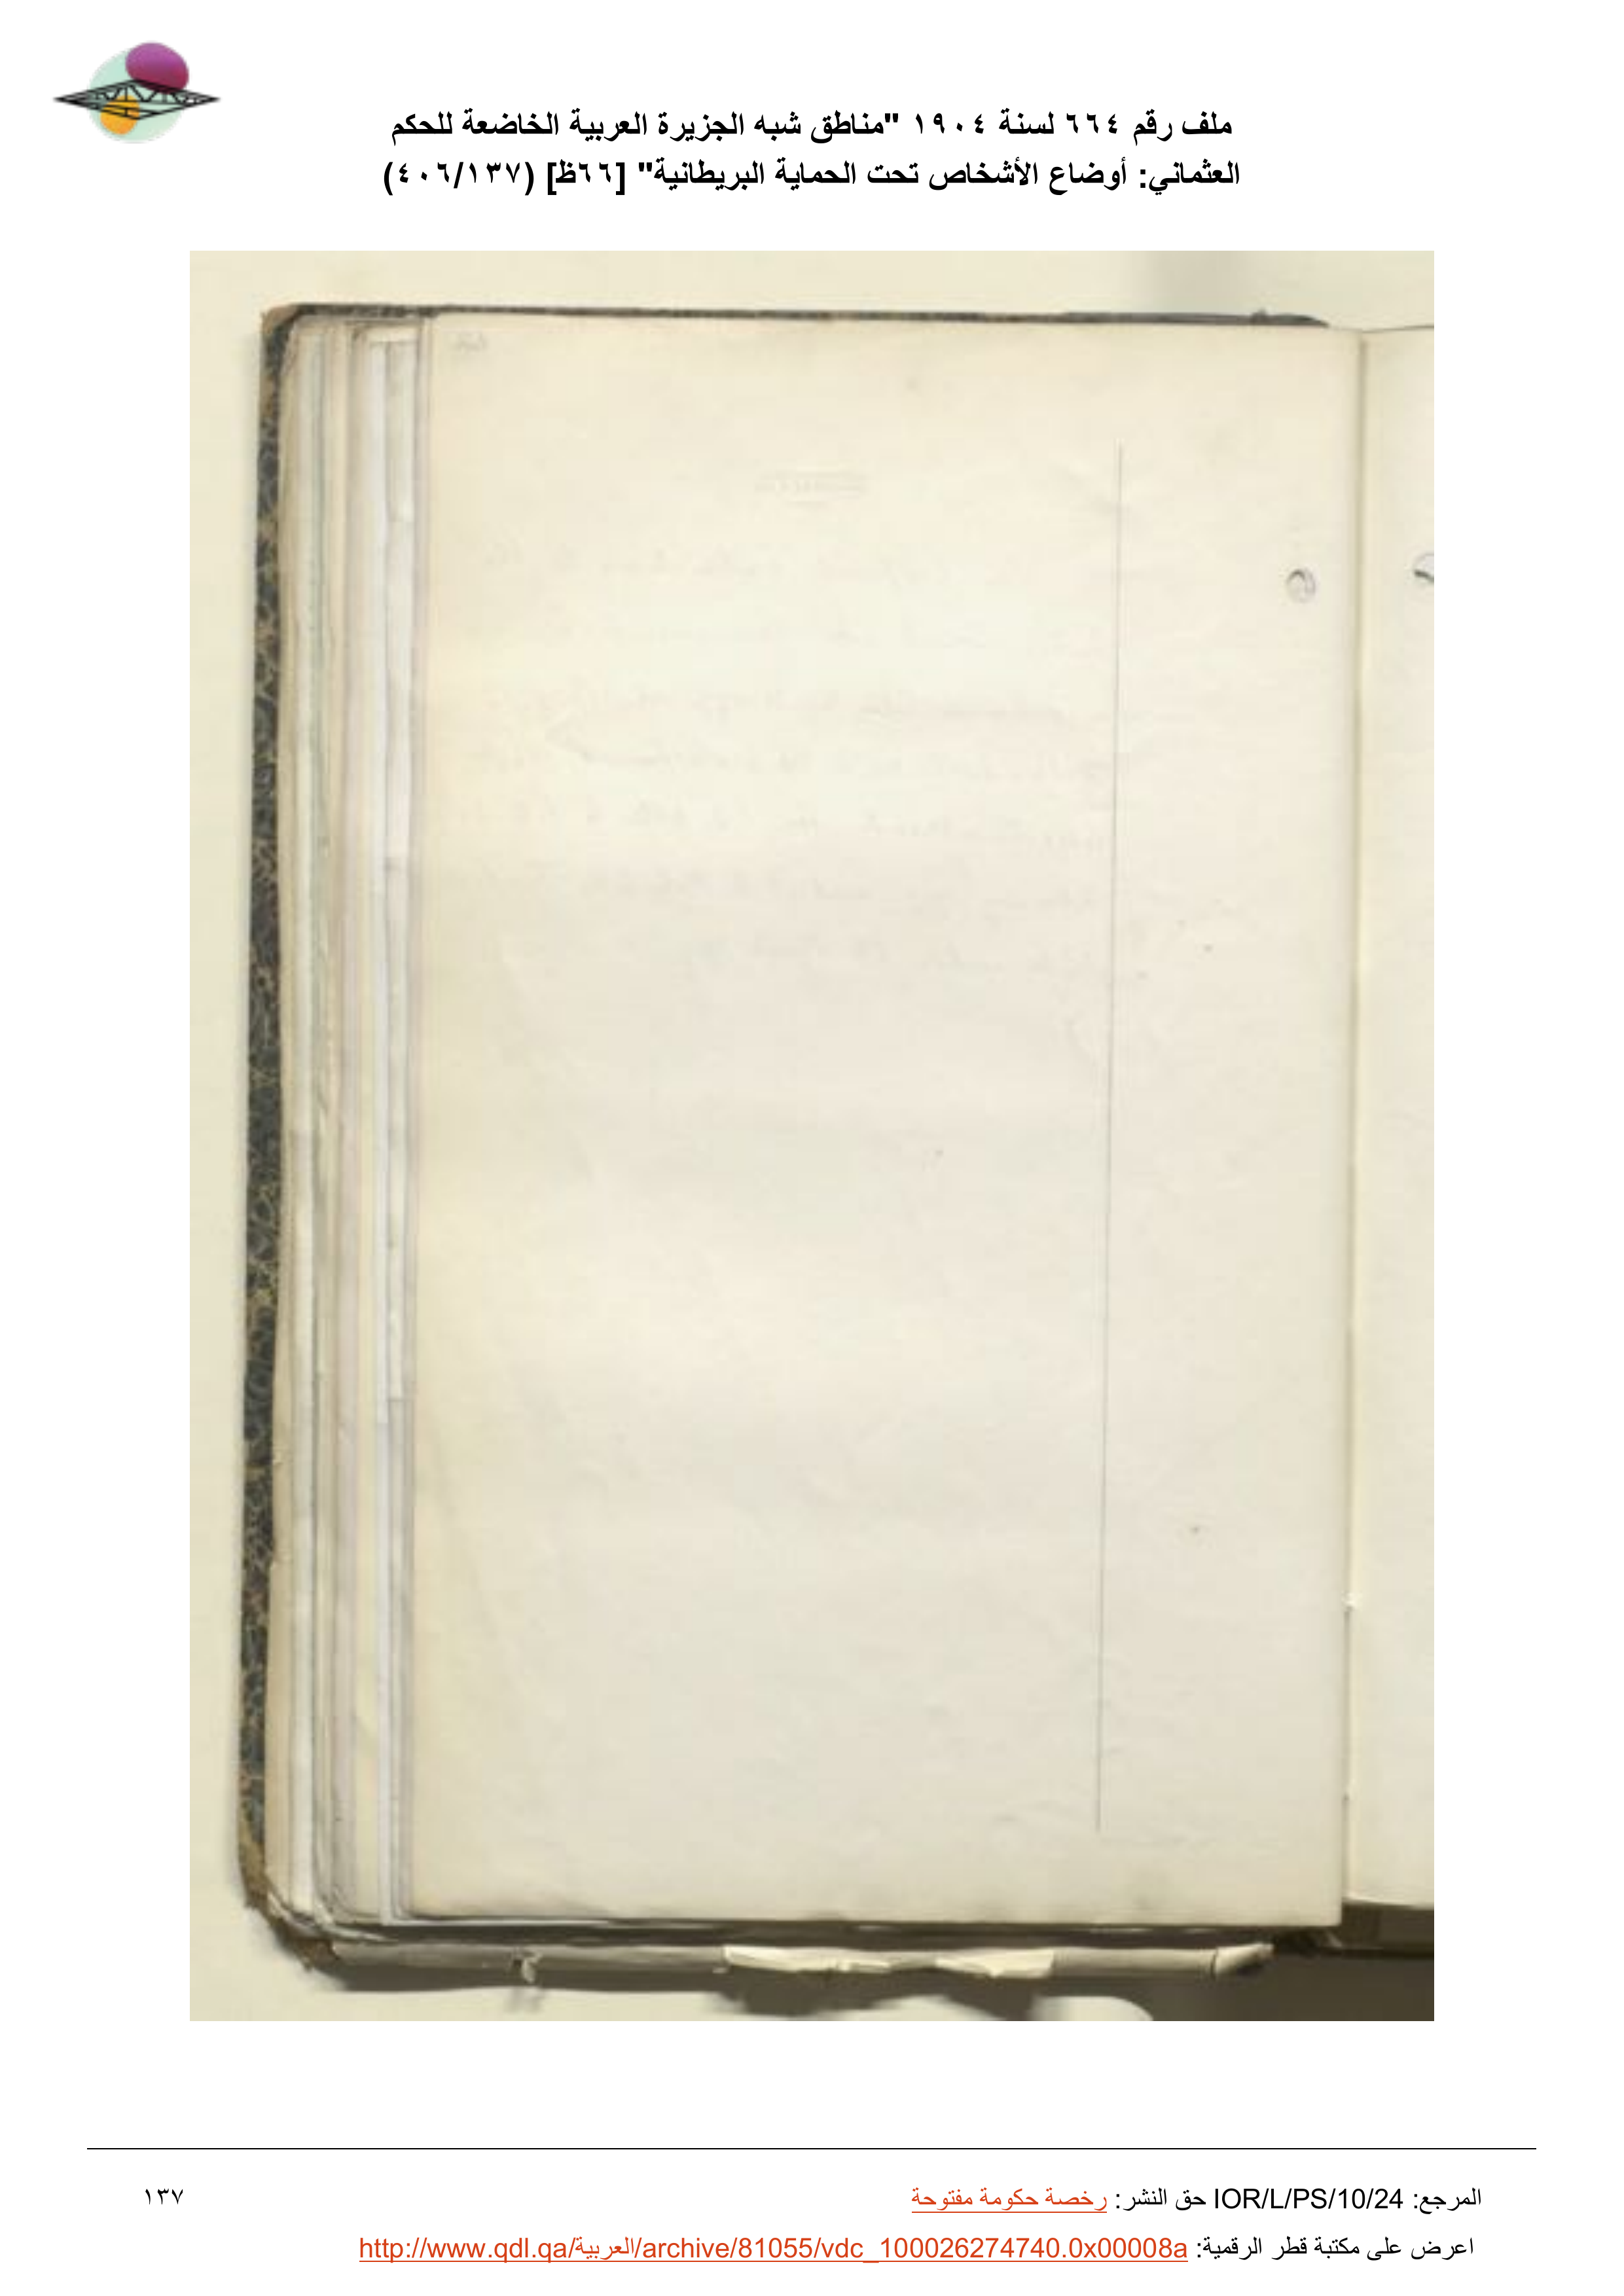 ملف رقم ٦٦٤ لسنة ١٩٠٤ "مناطق شبه الجزيرة العربية الخاضعة للحكم
العثماني: أوضاع الأشخاص تحت الحماية البريطانية" [٦٦ظ] (٤٠٦/١٣٧)
المرجع: IOR/L/PS/10/24 حق النشر: رخصة حكومة مفتوحة
١٣٧
اعرض على مكتبة قطر الرقمية: http://www.qdl.qa/العربية/archive/81055/vdc_100026274740.0x00008a